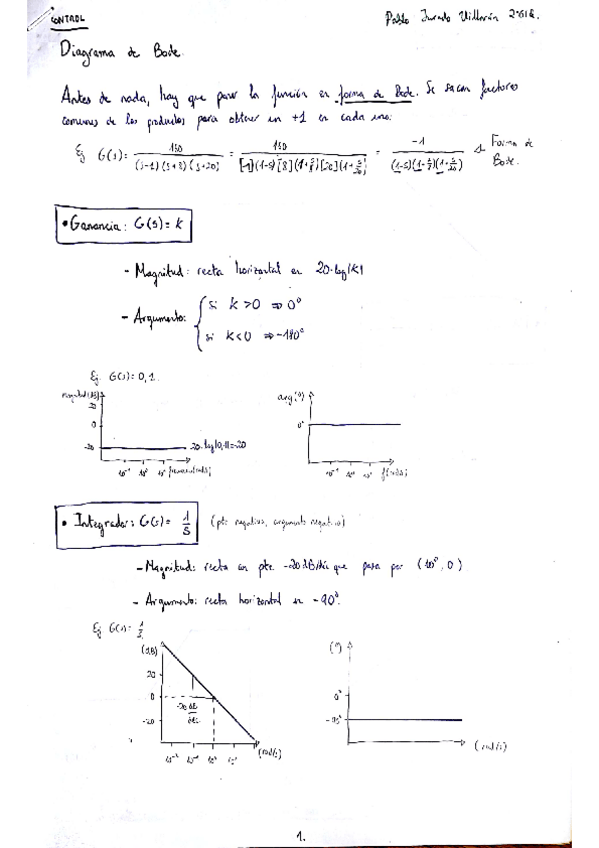 CONTROL
Pablo Jurado Villarán 2º
Diagrama de Bode.
Antes de nada, hay que poner la función en forma de Bode. Se sacan factores
comunes de los productos para obtener un +1 en cada uno:
Ej G(s) = 150 / (s-1)(s+8)(s+20) = 150 / [-1](1-s)[8](1+s/8)[20](1+s/20) = -1 / (1-s)(1+ )(1+s/20) Forma de
Bode.
• Ganancia: G(s) = k
- Magnitud: recta horizontal en 20·log|K|
- Argumento: { si k > 0 ⇒ 0º
si k < 0 ⇒ -180º
Ej. G(s) = 0,1
magnitud (dB) 20 0 -20
20·log|0,1| = -20
10⁻¹ 10⁰ 10¹
arg (º)
0º
10⁻¹ 10⁰ 10¹
• Integrador: G(s) = 1/s (pte negativa, argumento negativo)
- Magnitud: recta en pte. -20 dB/déc que pasa por (10⁰, 0)
- Argumento: recta horizontal en -90º.
Ej G(s) = 1/s
(dB) 20 0 -20
-20 dB/déc
10⁻² 10⁻¹ 10⁰ 10¹ (rad/s)
(º) 0º -90º (rad/s)
1.